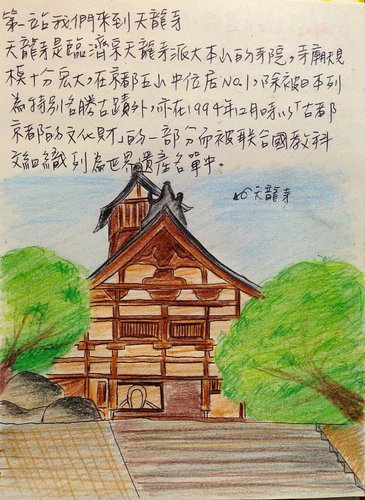 第一站我們來到天龍寺
天龍寺是臨濟宗天龍寺派大本山的寺院，寺廟規
模十分宏大，在京都五山中位居NO.1，除被日本列
為特別名勝古蹟外，亦在1994年12月時以「古都
京都的文化財」的一部分而被聯合國教科
文組織列為世界遺產名單中。
天龍寺